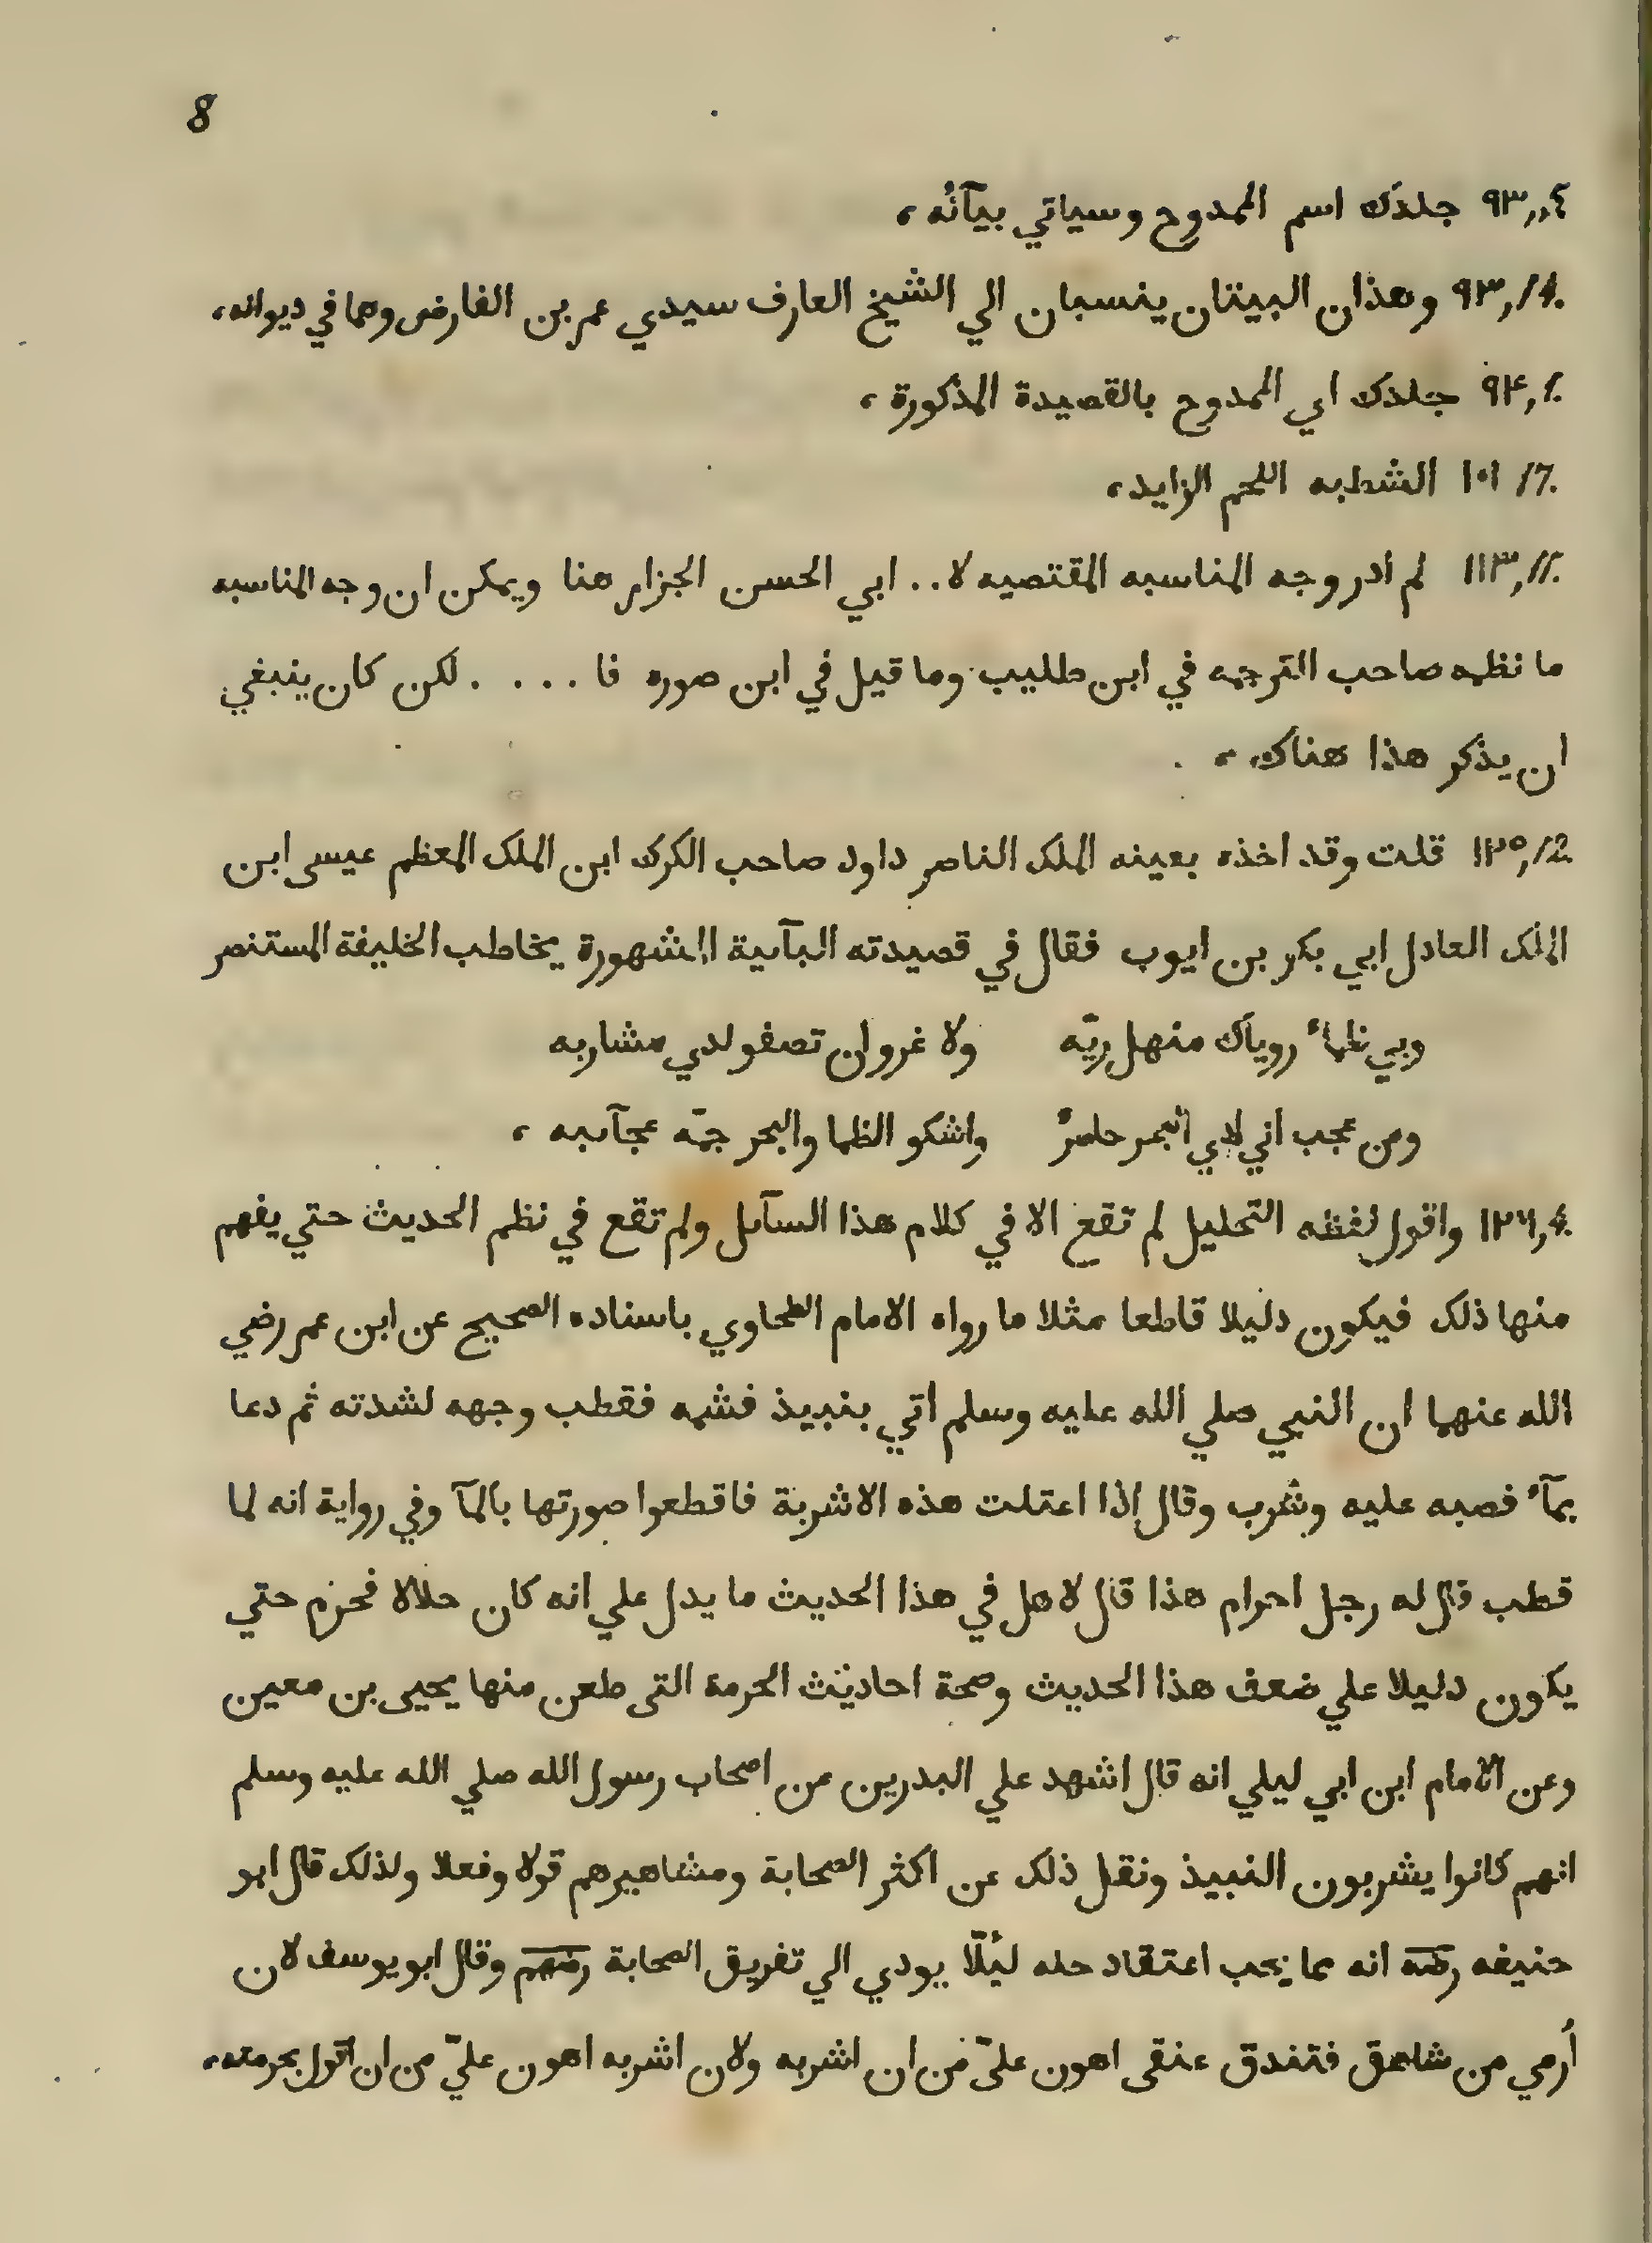 8
٩٣,,٤ جلدك اسم الممدوح وسياتي بيآنُه،
٩٣, وهذان البيتان ينسبان الي الشيخ العارف سيدي عمر بن الفارض وهما في ديوانه،
٩٤, جلدك اي الممدوح بالقصيدة المذكورة،
١٠١ الشطبه اللحم الزايد،
١١٣, لم ادر وجه المناسبه المقتضيه لا.. ابي الحسن الجزار هنا ويمكن ان وجه المناسبه
ما نظمه صاحب الترجمه في ابن طليب وما قيل في ابن صوره فا . . . . لكن كان ينبغي
ان يذكر هذا هناك،
١٢٥, قلت وقد اخذه بعينه الملك الناصر داود صاحب الكرك ابن الملك المعظم عيسى ابن
الملك العادل ابي بكر بن ايوب فقال في قصيدته البآئية المشهورة يخاطب الخليفة المستنصر
وبي ظمأ روياك منهل ريّه ولا غرو ان تصفو لدي مشاربه
ومن عجب اني لدي البحر حاضرٌ واشكو الظما والبحر جمّه عجآئبه،
١٢٦, واقول لفظه التحليل لم تقع الا في كلام هذا السآئل ولم تقع في نظم الحديث حتي يفهم
منها ذلك فيكون دليلا قاطعا مثلا ما رواه الامام الطحاوي باسناده الصحيح عن ابن عمر رضي
الله عنهما ان النبي صلي الله عليه وسلم اتي بنبيذ فشمه فقطب وجهه لشدته ثم دعا
بمآء فصبه عليه وشرب وقال اذا اعتلت هذه الاشربة فاقطعوا صورتها بالمآ وفي رواية انه لما
قطب قال له رجل احرام هذا قال لا هل في هذا الحديث ما يدل علي انه كان حلالا فحرم حتي
يكون دليلا علي ضعف هذا الحديث وصحة احاديث الحرمة التى طعن منها يحيى بن معين
وعن الامام ابن ابي ليلي انه قال اشهد علي البدرين من اصحاب رسول الله صلي الله عليه وسلم
انهم كانوا يشربون النبيذ ونقل ذلك عن اكثر الصحابة ومشاهيرهم قولا وفعلا ولذلك قال ابو
حنيفه رضه انه مما يجب اعتقاد حله ليُلّا يودي الي تفريق الصحابة رضهم وقال ابو يوسف لان
أرمي من شاهق فتندق عنقى اهون عليّ من ان اشربه ولان اشربه اهون عليّ من ان اقول بحرمته،